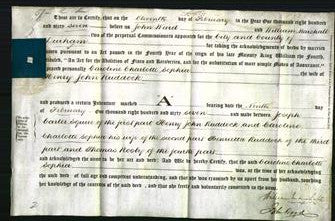 These are to Certify, that on the eleventh day of February in the Year One thousand eight
hundred and sixty seven before us John Ward and William Marshall
two of the perpetual Commissioners appointed for the City and County of
Durham for taking the acknowledgments of deeds by married
women pursuant to an Act passed in the Fourth Year of the reign of his late Majesty King William the Fourth,
intituled "An Act for the Abolition of Fines and Recoveries, and for the substitution of more simple Modes of Assurance",
appeared personally Caroline Charlotte Sophia
the wife of
Henry John Ruddock
and produced a certain Indenture marked A bearing date the Ninth day
of February One thousand eight hundred and sixty seven and made between Joseph
Carter Squire of the first part Henry John Ruddock and Caroline
Charlotte Sophia his wife of the second part Henrietta Ruddock of the third
part and Thomas Rooby of the fourth part
and acknowledged the same to be her act and deed. And we do hereby Certify, that the said Caroline Charlotte
Sophia was, at the time of her acknowledging
the said deed, of full age and competent understanding, and that she was examined by us apart from her husband, touching
her knowledge of the contents of the said deed, and that she freely and voluntarily consented to the same.